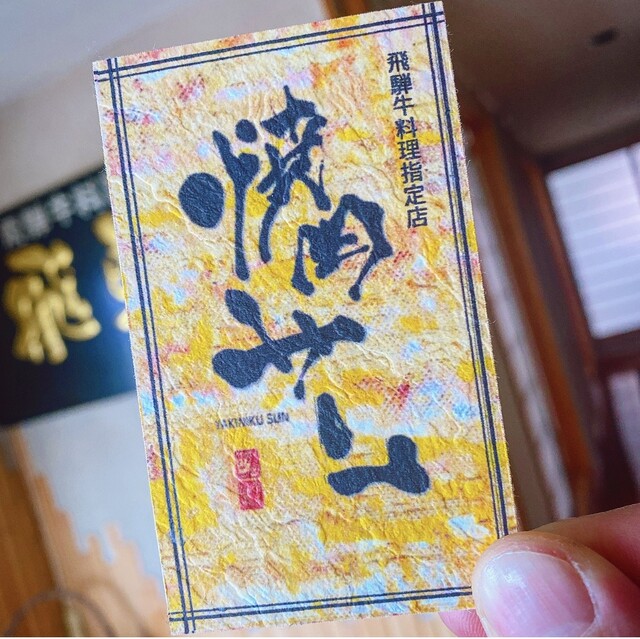 飛騨牛料理指定店
焼肉サン
YAKINIKU SUN
飛騨牛料
飛